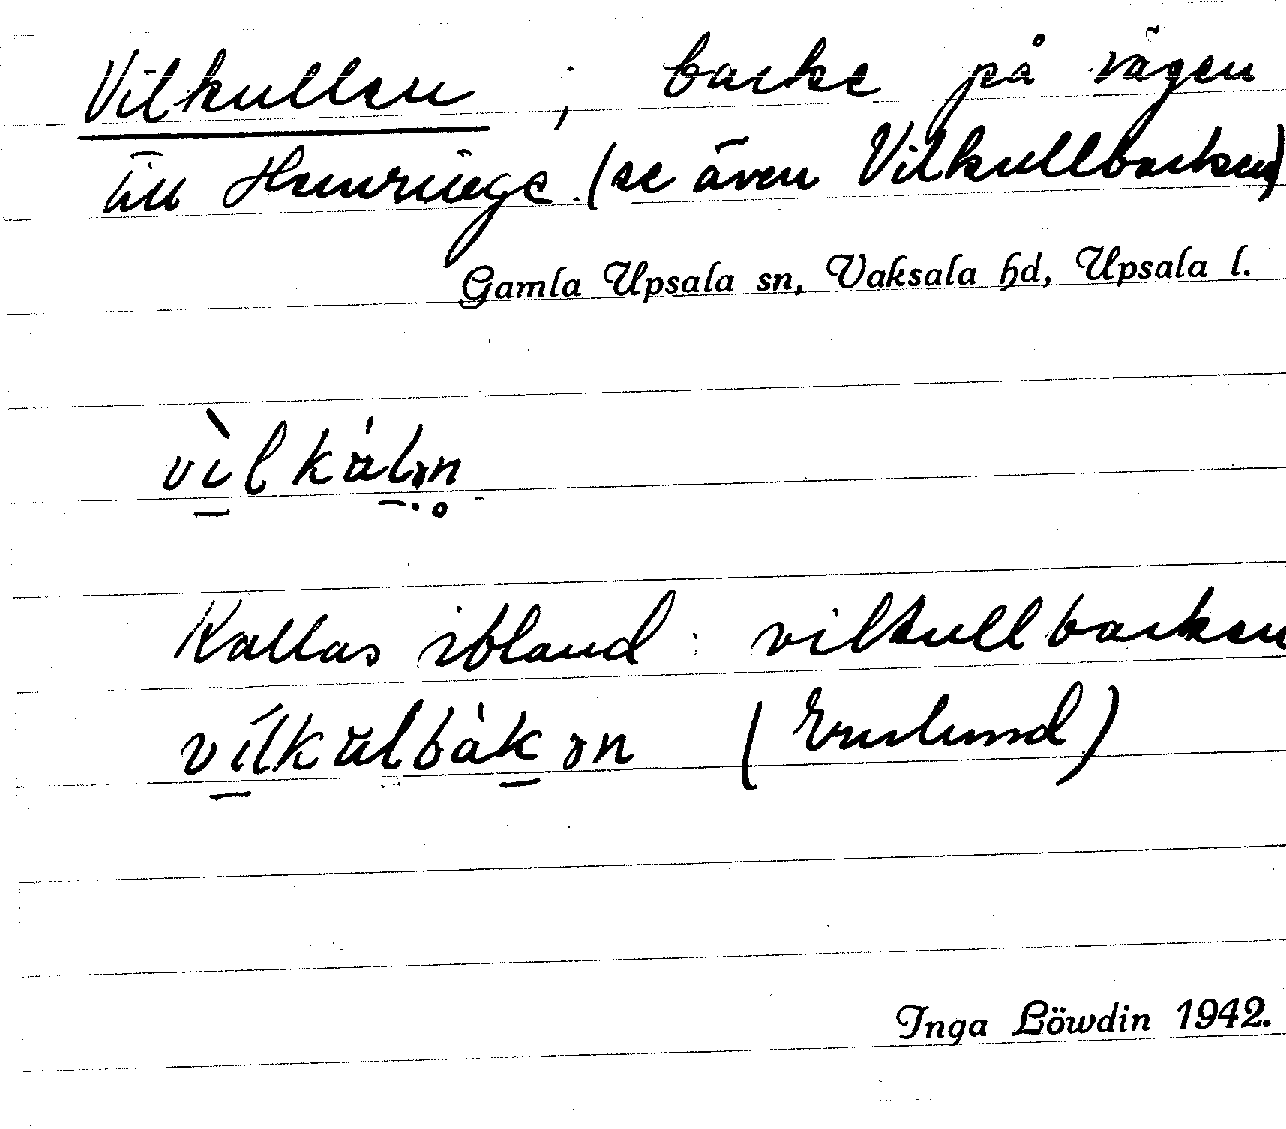 Vilkullen, backe på vägen
till Hemringe. (se även Vilkullbacken)
Gamla Upsala sn, Vaksala hd, Upsala l.
Kallas ibland: vilkullbacken
Inga Löwdin 1942.